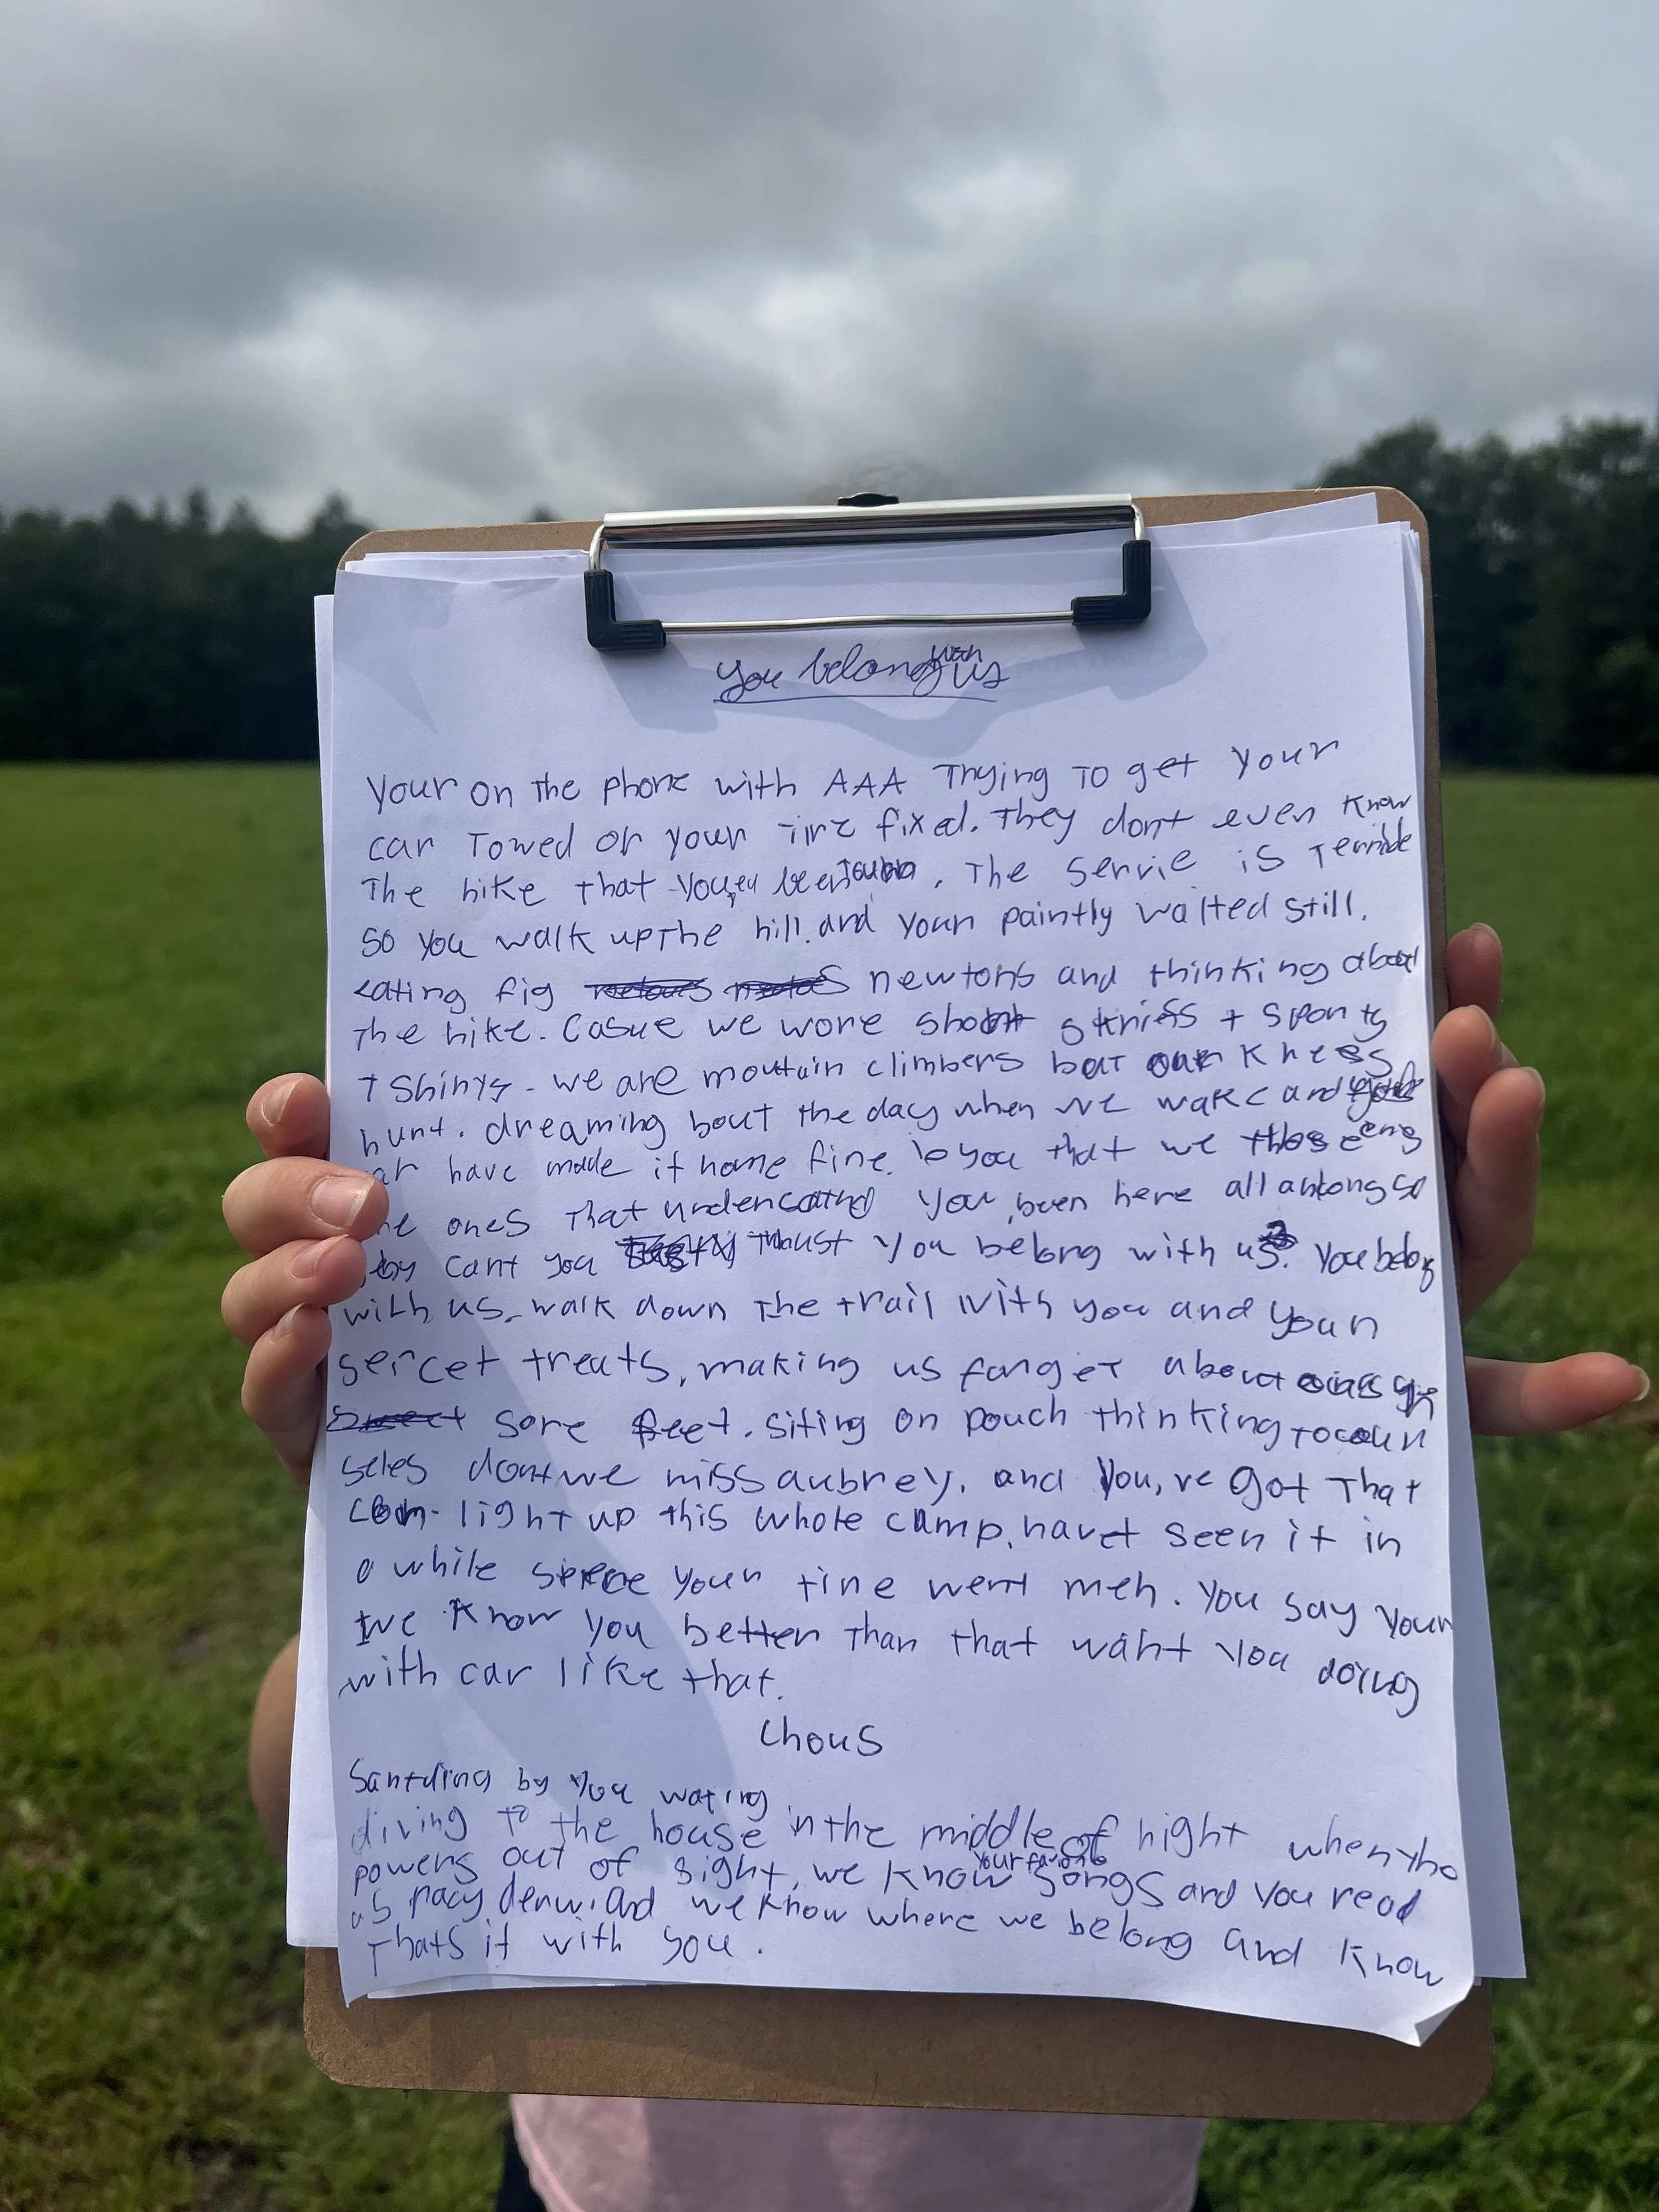 You belong with us
Your on the phone with AAA Trying To get Your
car Towed or your Tire fixed. They dont even know
The hike that You,ev been . The servie is Terrible
so you walk up The hill. and your paintly waited still.
eating fig newtons and thinking about
The hike. Casue we wore short + sporty
T shirts - we are moutain climbers but our knees
hurt. dreaming bout the day when we wake and
car have made it home fine. to you that we
ones That You been here all along so
cant you You belong with us. You belong
with us. walk down The trail with you and your
sercet treats, making us forget about
sore feet. siting on pouch thinking to
seles dont we miss aubrey. and You,ve got That
can light up this whole camp. havet seen it in
a while your tire went meh. You say Your
we know you better Than that waht You doing
with car like that.
Chous
Santding by You wating
diving To the house in the middle of night when the
powers out of sight, we know your songs and you read
us and we know where we belong and know
Thats it with you.